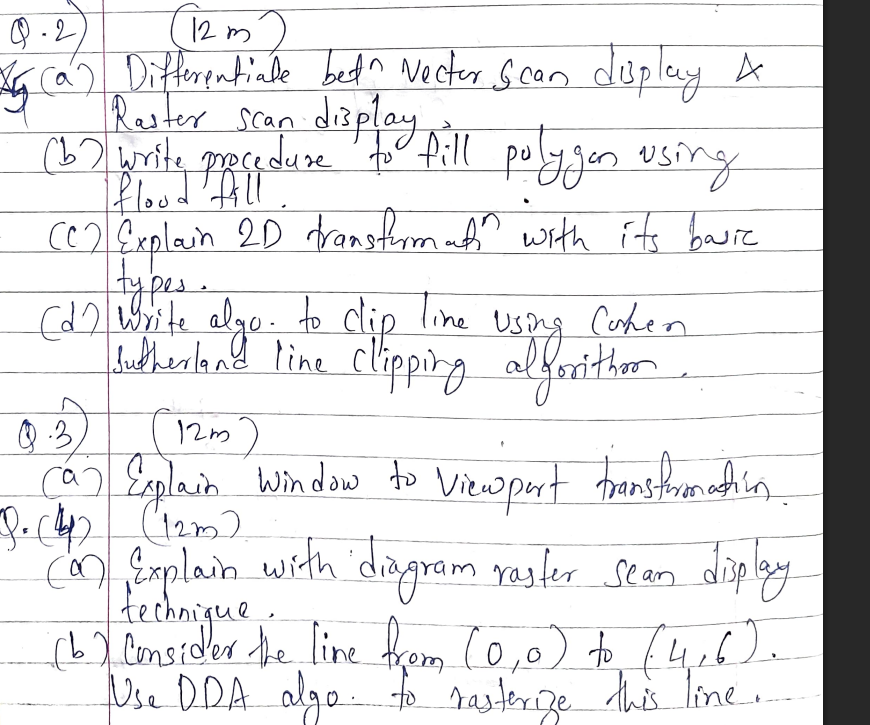 Q.2) (12 m)
(a) Differentiate betn Vector Scan display &
Raster scan display.
(b) Write procedure to fill polygon using
flood fill.
(c) Explain 2D transformatn with its basic
types.
(d) Write algo. to clip line using Cohen
Sutherland line clipping algorithm.
Q.3) (12m)
(a) Explain Window to Viewport transformation
Q.(4) (12m)
(a) Explain with diagram raster scan display
technique.
(b) Consider the line from (0,0) to (4,6).
Use DDA algo. to rasterize this line.